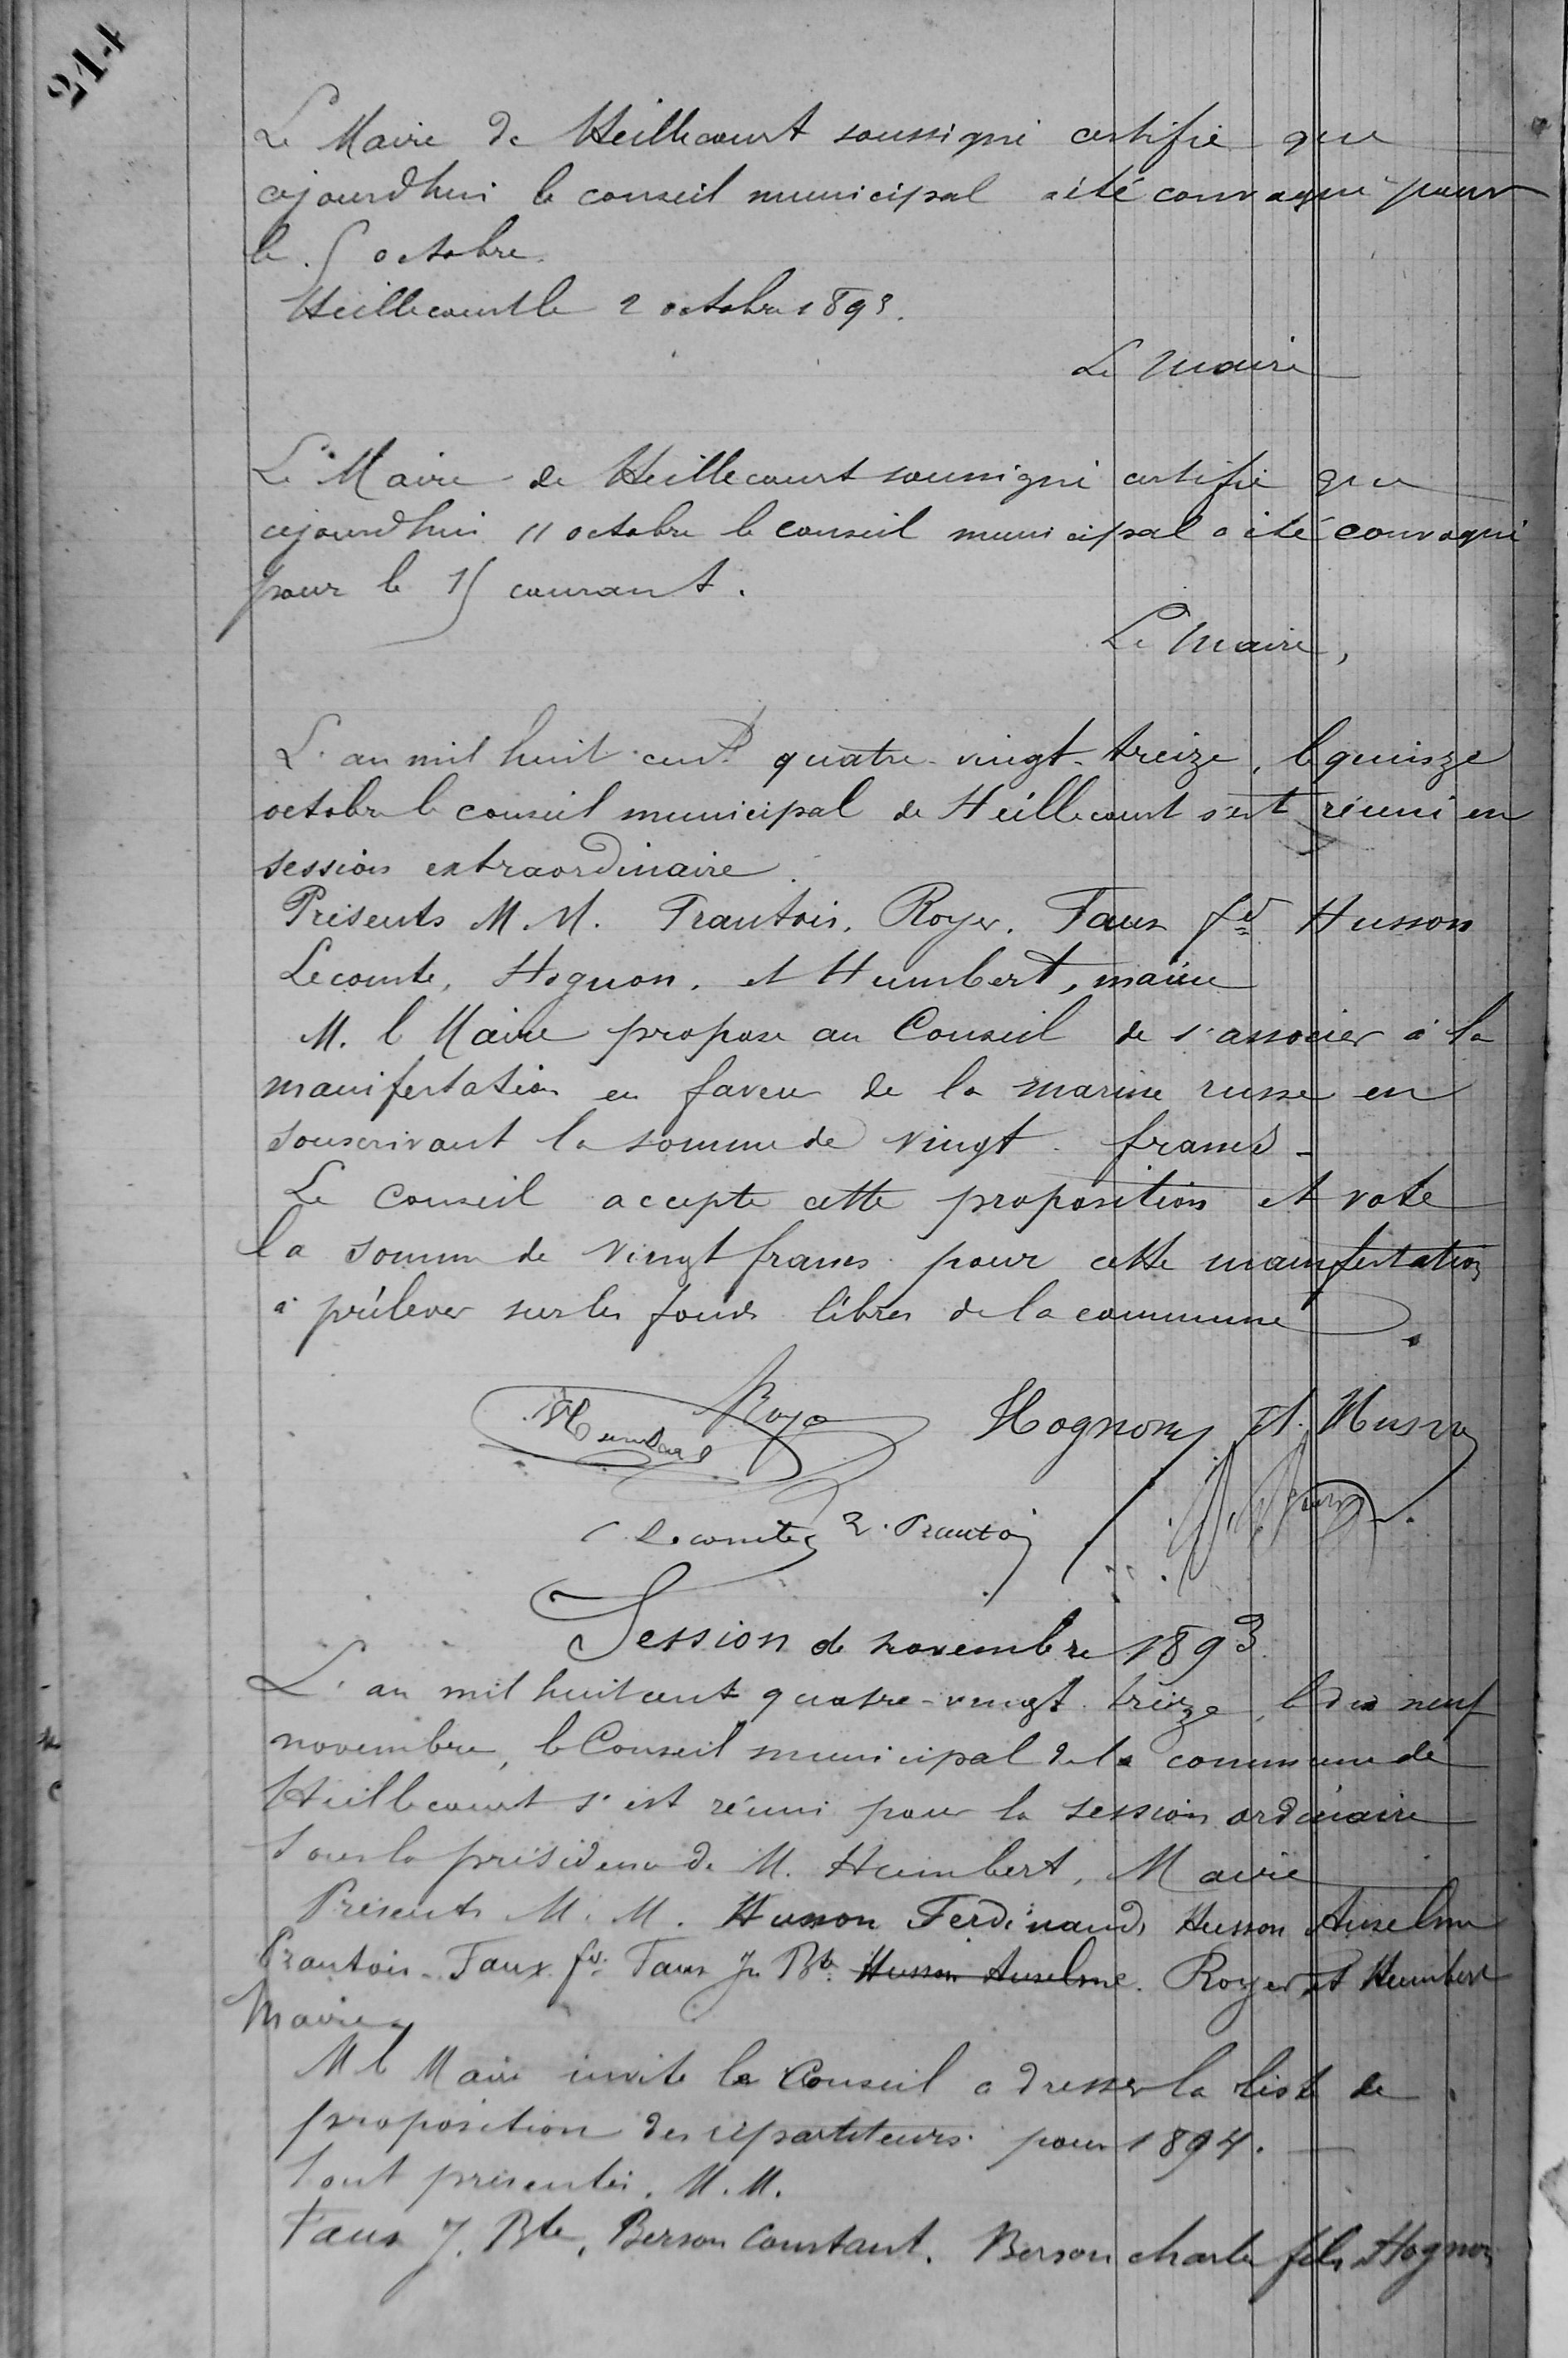 214
Le Maire de Heillecourt soussigné certifie que
cejourd'hui le conseil municipal a été convoqué pour
le 5 octobre.
Heillecourt le 2 octobre 1893.
Le Maire
Le Maire de Heillecourt soussigné certifie que
cejourd'hui 11 octobre le conseil municipal a été convoqué
pour le 15 courant.
Le Maire,
L'an mil huit cent quatre-vingt-treize, le quinze
octobre le conseil municipal de Heillecourt s'est réuni en
session extraordinaire.
Présents M.M. Frantois, Royer, Faux fd Husson
Lecomte, Hognon, et Humbert, maire
M. le Maire propose au Conseil de s'associer à la
manifestation en faveur de la marine russe en
souscrivant la somme de vingt francs -
Le Conseil accepte cette proposition et vote
la somme de vingt francs pour cette manifestation
à prélever sur les fonds libres de la commune.
Humbert Royer Hognon A. Husson
Lecomte Frantois
Session de novembre 1893.
L'an mil huit cent quatre-vingt treize, le dix neuf
novembre, le Conseil municipal de la commune de
Heillecourt s'est réuni pour la session ordinaire
sous la présidence de M. Humbert, Maire
Présents M.M. Husson Ferdinand, Husson Anselme
Frantois. Faux fd. Faux Jn Bte Husson Anselme. Royer et Humbert
Maire
M le Maire invite le Conseil a dresser la liste de
proposition des répartiteurs pour 1894.
Sont présentés. M.M.
Faux J. Bte, Berson Constant. Berson Charles fils Hognon